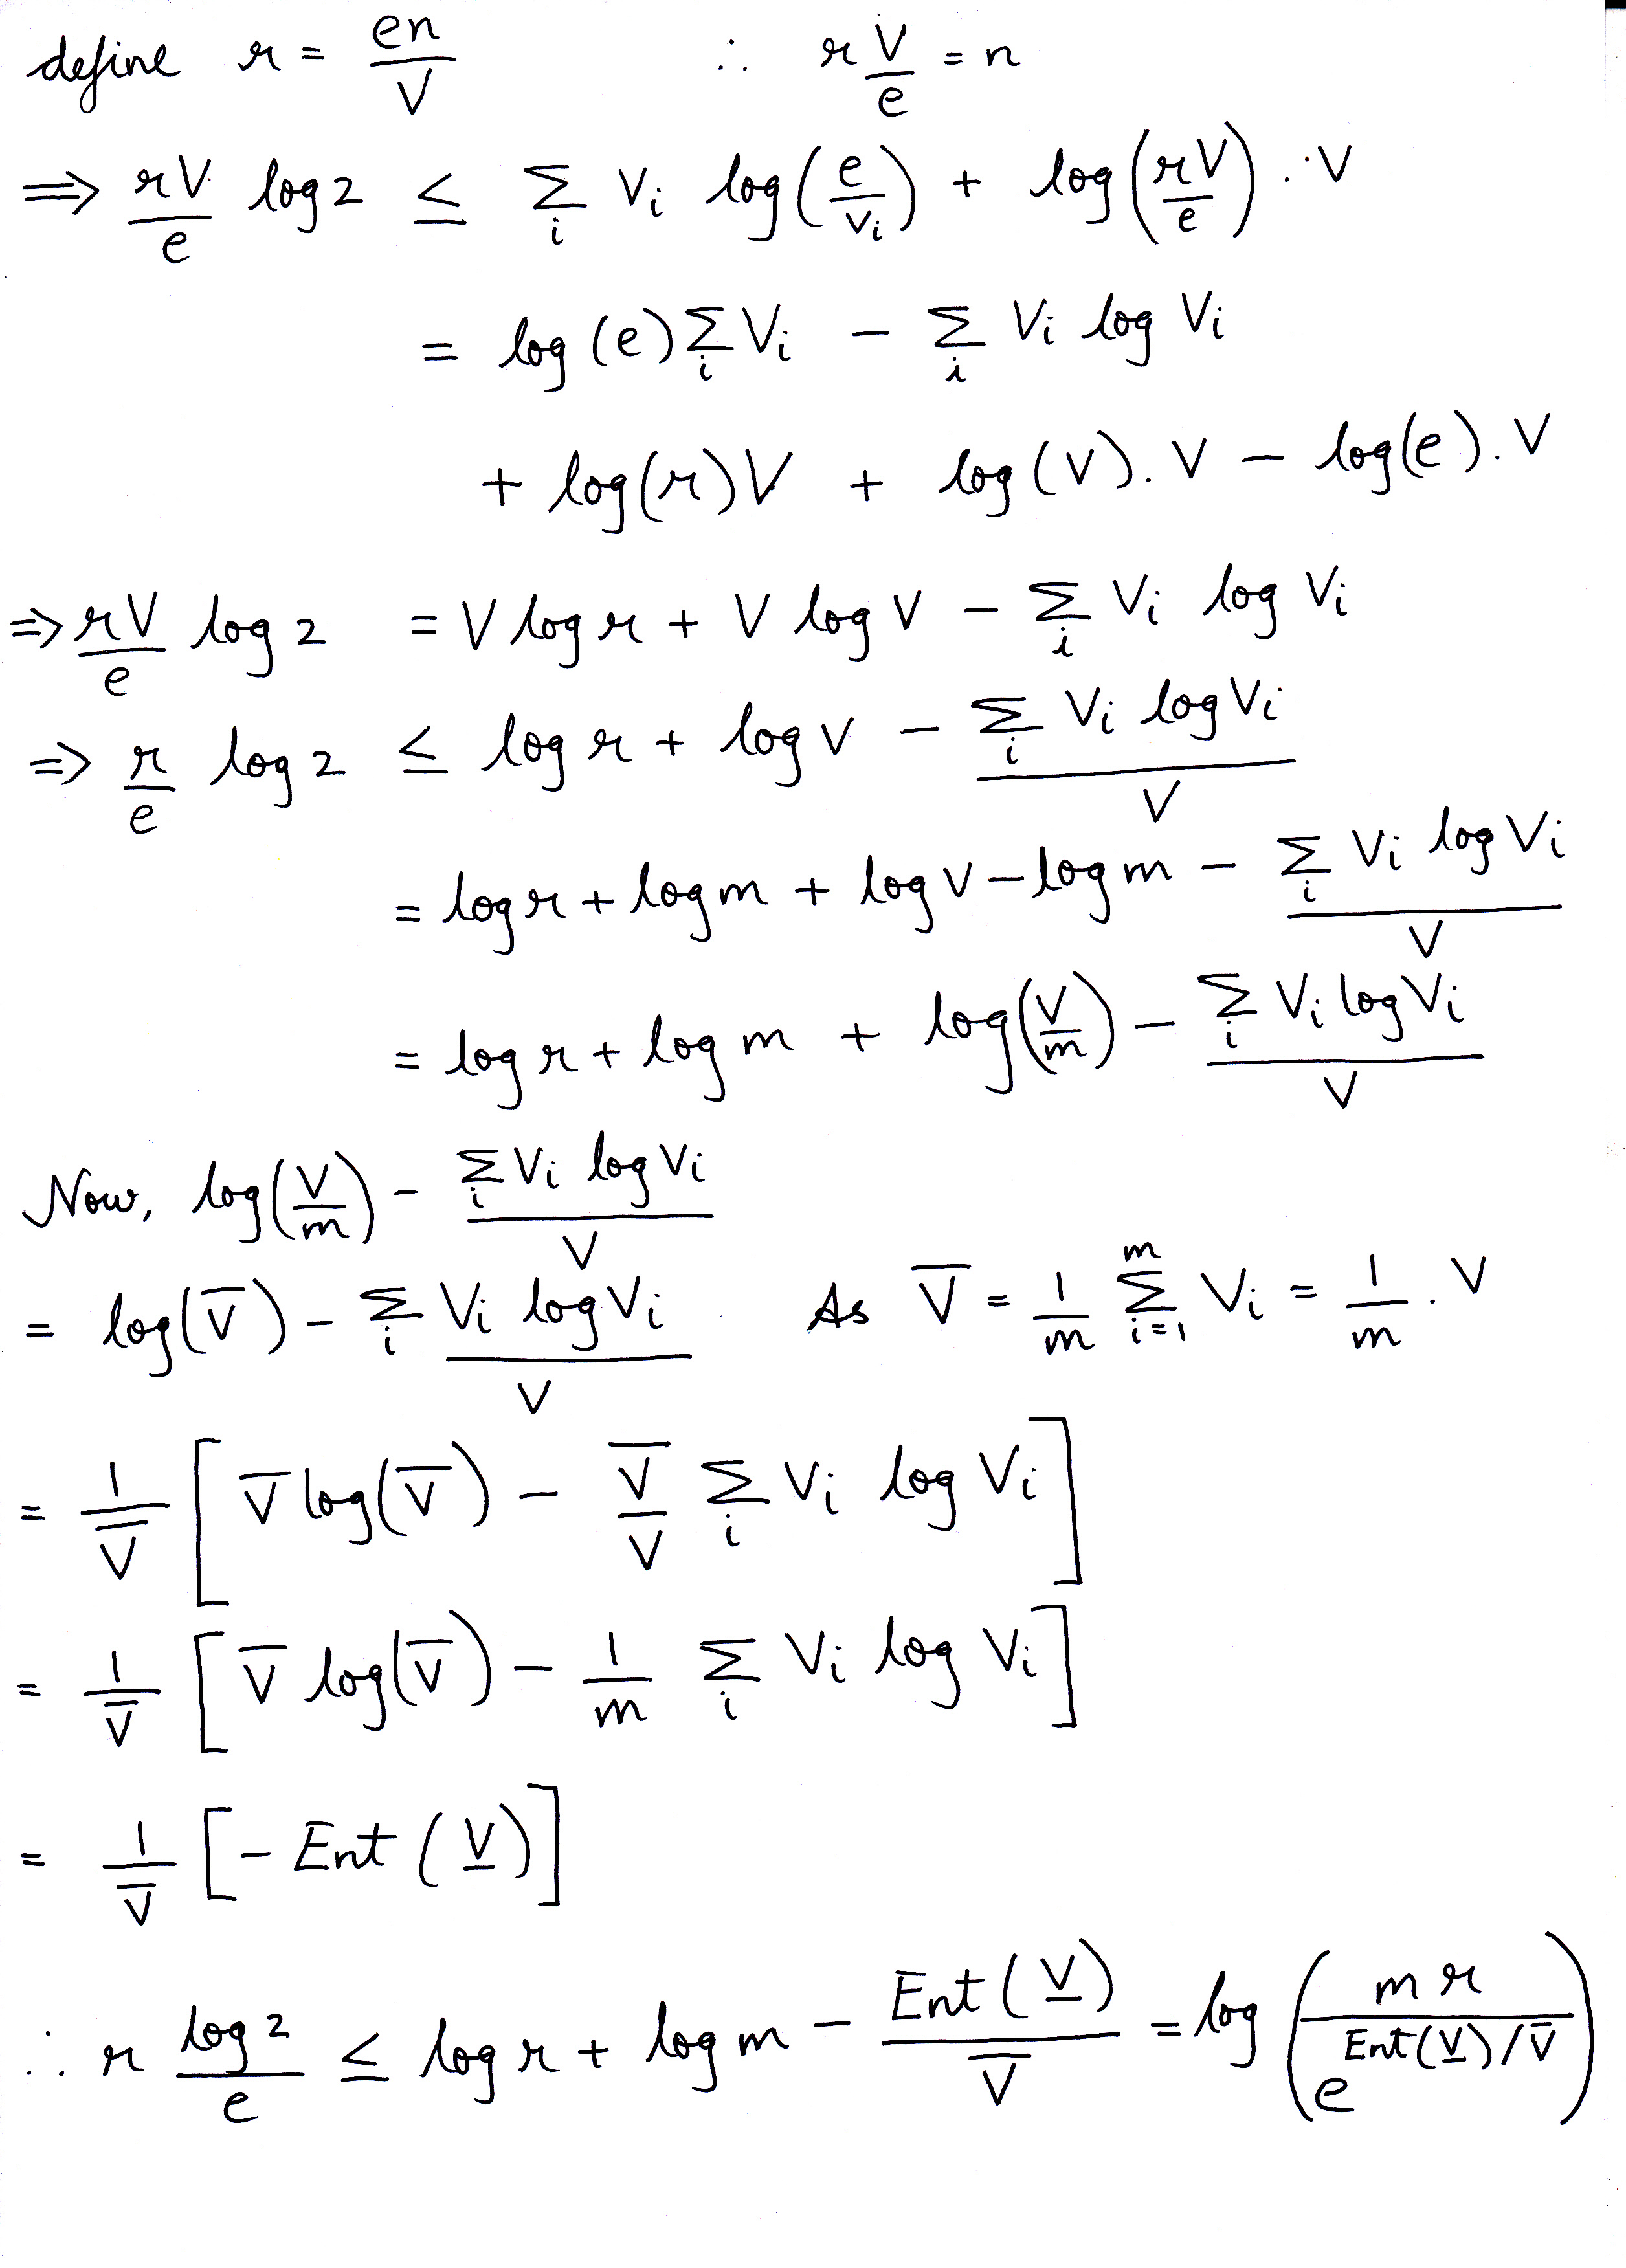 define r = en/V ∴ r V/e = n
⇒ rV/e log 2 ≤ Σ_i V_i log(e/V_i) + log(rV/e) . V
= log(e) Σ_i V_i − Σ_i V_i log V_i
+ log(r)V + log(V). V − log(e). V
⇒ rV/e log 2 = V log r + V log V − Σ_i V_i log V_i
⇒ r/e log 2 ≤ log r + log V − (Σ_i V_i log V_i)/V
= log r + log m + log V − log m − (Σ_i V_i log V_i)/V
= log r + log m + log(V/m) − (Σ_i V_i log V_i)/V
Now, log(V/m) − (Σ_i V_i log V_i)/V
= log(V̅) − Σ_i (V_i log V_i)/V As V̅ = 1/m Σ_{i=1}^{m} V_i = 1/m . V
= 1/V̅ [V̅ log(V̅) − V̅/V Σ_i V_i log V_i]
= 1/V̅ [V̅ log(V̅) − 1/m Σ_i V_i log V_i]
= 1/V̅ [− Ent(V̲)]
∴ r log 2/e ≤ log r + log m − Ent(V̲)/V̅ = log(m r/e^{Ent(V̲)/V̅})